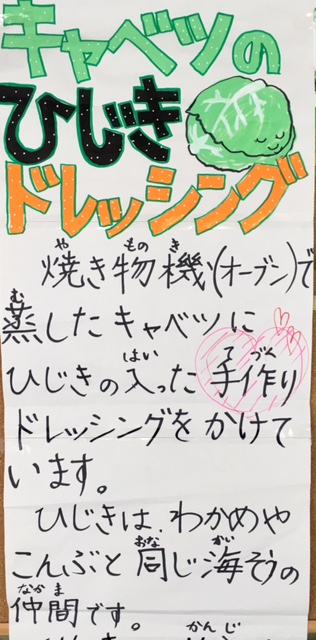 キャベツの
ひじき
ドレッシング
焼き物機(オーブン)で
蒸したキャベツに
ひじきの入った手作り
ドレッシングをかけて
います。
ひじきは、わかめや
こんぶと同じ海そうの
仲間です。